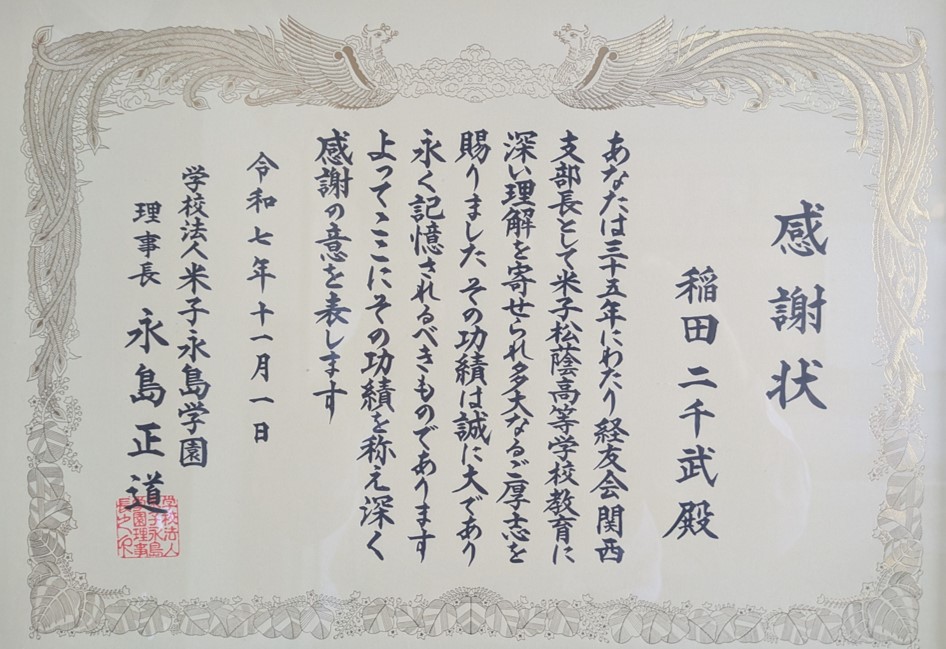 感謝状
稲田二千武殿
あなたは三十五年にわたり経友会関西
支部長として米子松蔭高等学校教育に
深い理解を寄せられ多大なるご厚志を
賜りました その功績は誠に大であり
永く記憶されるべきものであります
よってここにその功績を称え深く
感謝の意を表します
令和七年十一月一日
学校法人米子永島学園
理事長 永島正道
学校法人
米子永島
学園理事
長之印